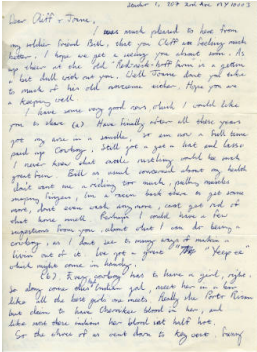 1, 207 2nd Ave NY 10003
Dear Cliff & Joane,
I was much pleased to hear from
my soldier friend Bill, that you Cliff are feeling much
better. I hope we get a seeing you about town. As
up their at the old Redneck-hoft hown is a gettin
a bit dull with out you. Well Joane dont you take
to much of his old nonsense either. Hope you are
a keeping well
I have some very good news which I would like
you to share (a) Have finally after all these years
got my arse in a saddle, so am now a full time
paid up Cowboy. Still got a get a hat and lasso
I never knew that cattle rustling could be such
great fun. Bill as usual concerned about my health
dont want me a riding too much,
more, dont even wash any more, cant get rid of
that horse smell. Perhaps I could have a few
suggestions from you, about what I can do being a
cowboy, as I dont see to many ways of makin a
livin out of it. Ive got a great "Yeepee"
which might come in handy.
(b) Every cowboy has to have a girl, right.
So along came this Indian gal, meet her in a bar
like all the best girls one meets. Really she Porto Rican
but claim to have Cherokee blood in her, and
like most these indians her blood is half hot.
So the three of us went down to Key west, having